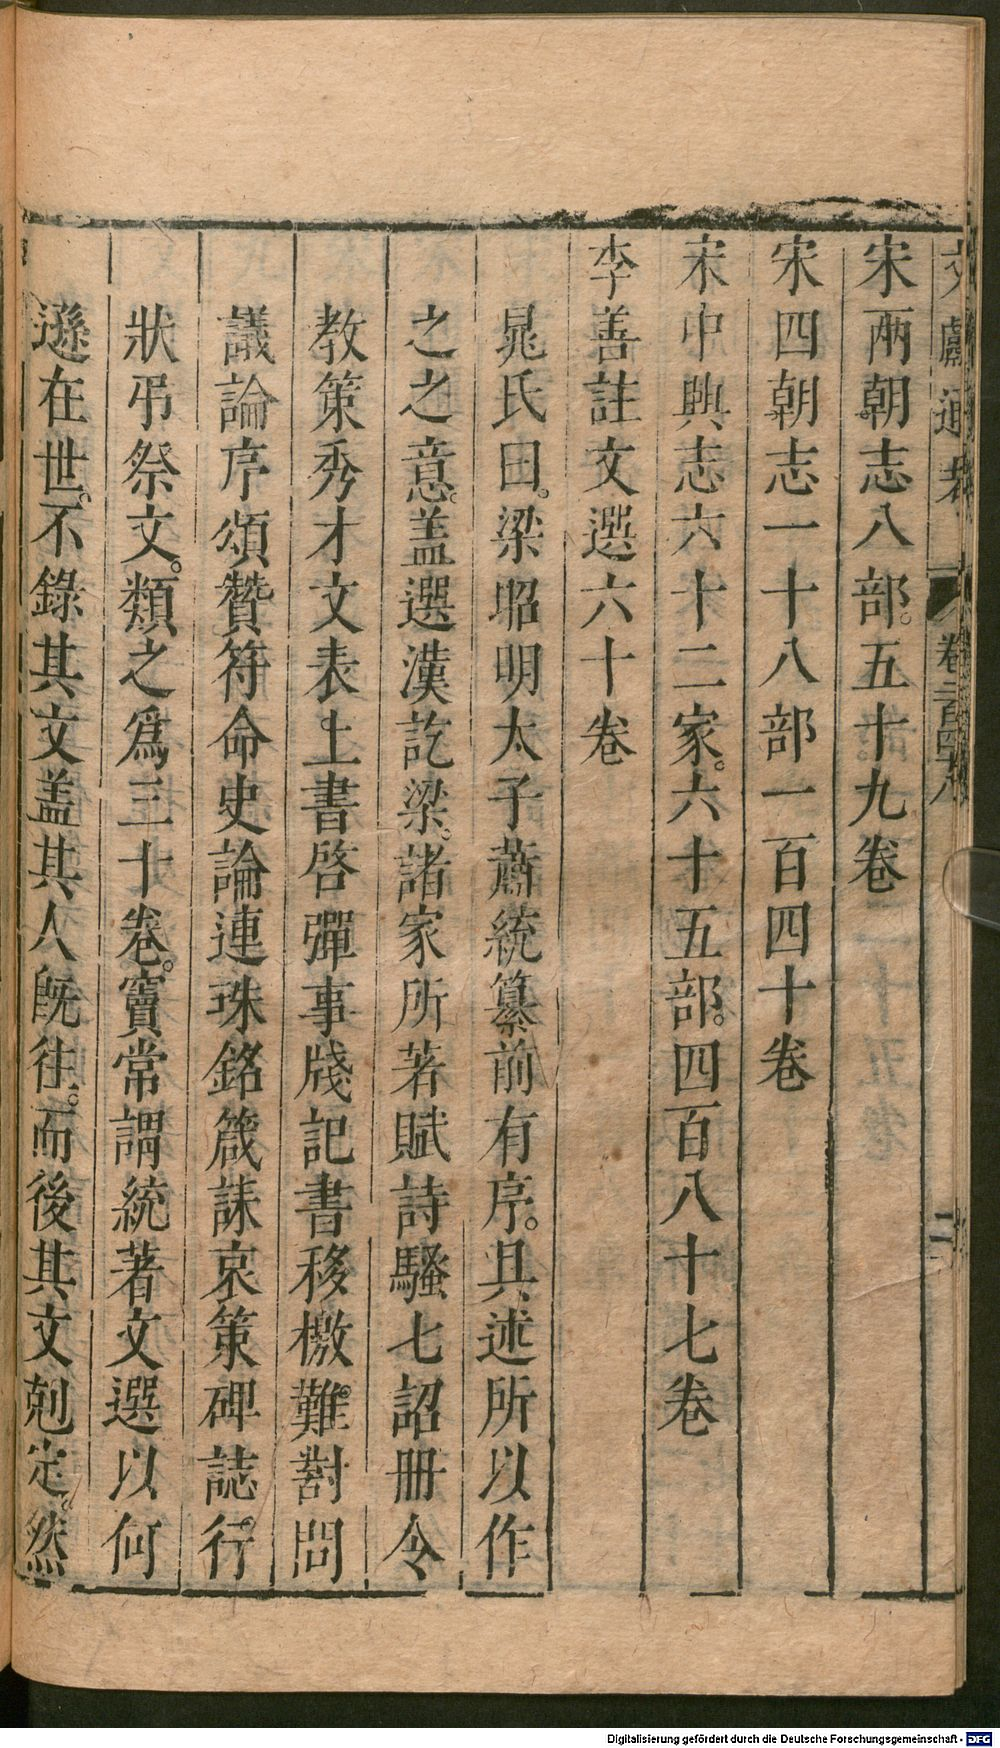 文獻通考 卷二百四十八 二
宋兩朝志八部。五十九卷
宋四朝志一十八部一百四十卷
宋中興志六十二家。六十五部。四百八十七卷
李善註文選六十卷
晁氏曰。梁昭明太子蕭統纂前有序。具述所以作
之之意。蓋選漢訖梁。諸家所著賦詩騷七詔冊令
教策秀才文表上書啓彈事牋記書移檄。難對問
議論序頌贊符命史論連珠銘箴誄哀策碑誌。行
狀弔祭文。類之爲三十卷。竇常謂統著文選以何
遜在世。不錄其文蓋其人旣往。而後其文剋定。然
Digitalisierung gefördert durch die Deutsche Forschungsgemeinschaft - DFG